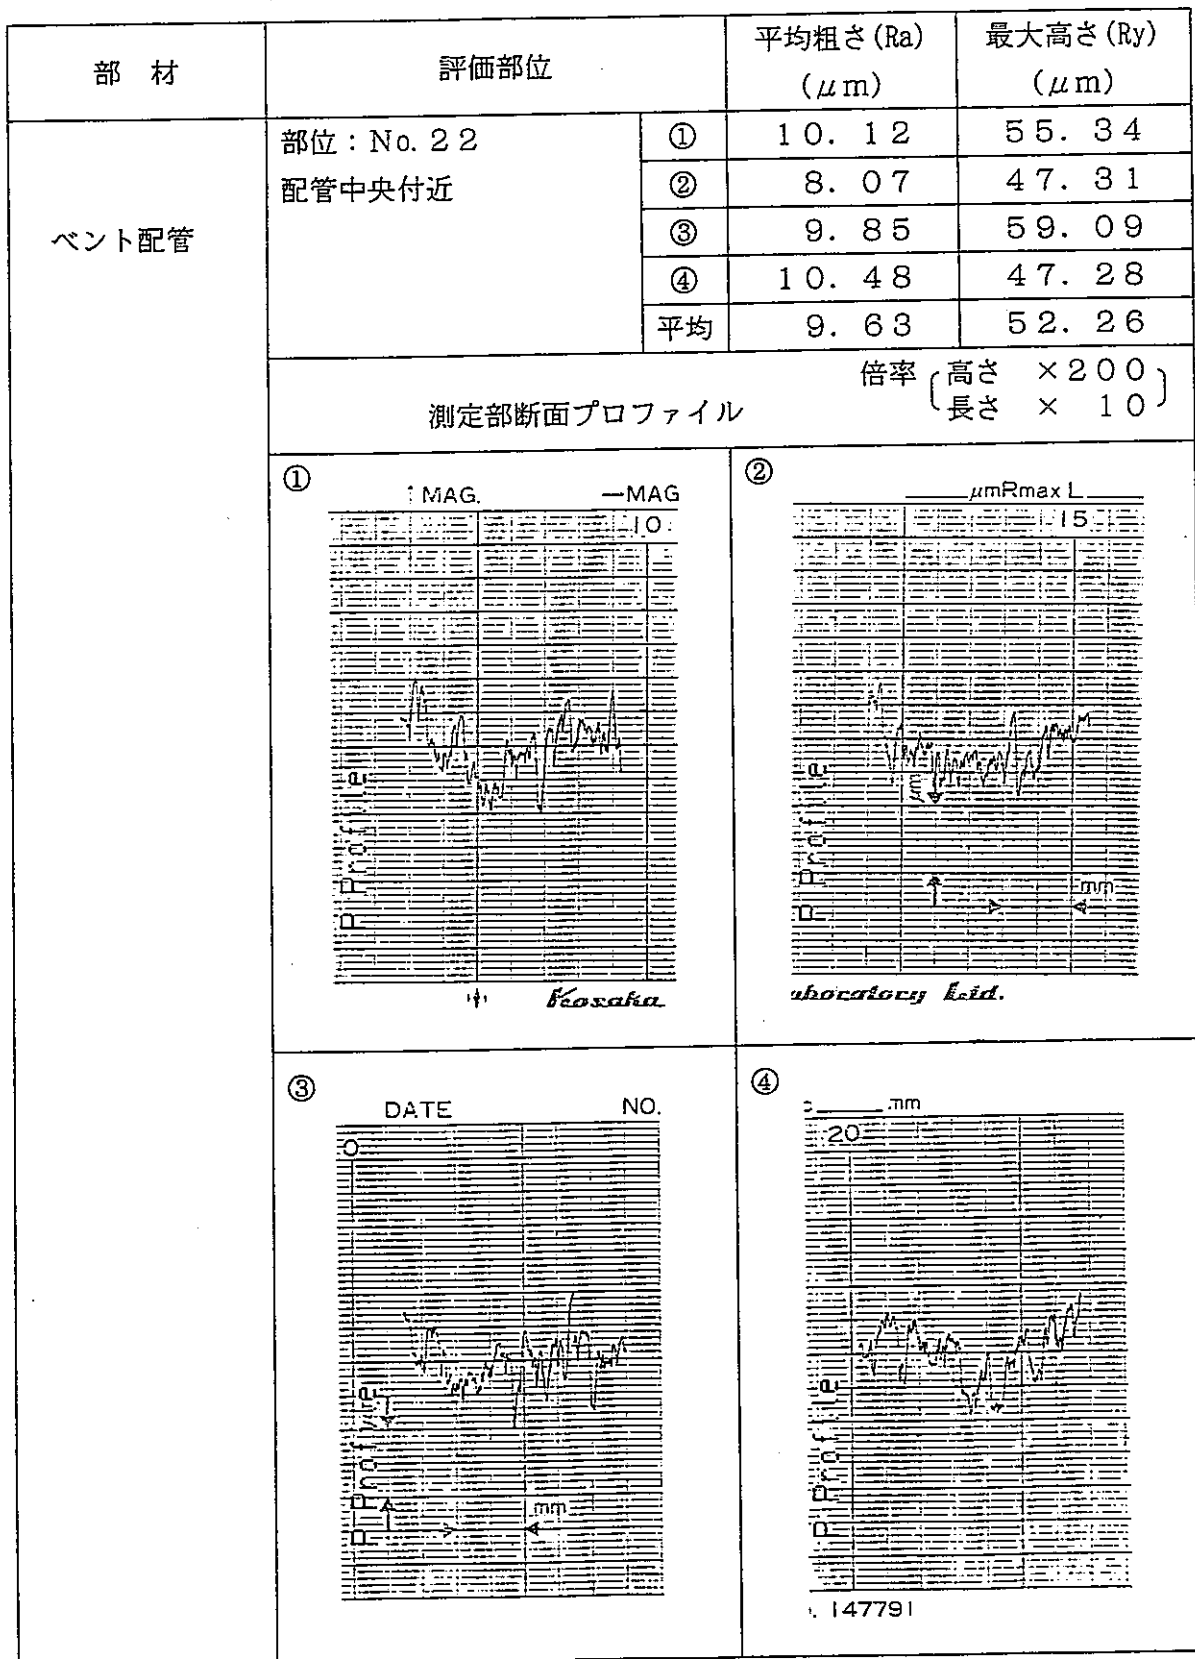 部 材
評価部位
平均粗さ(Ra)
(μm)
最大高さ(Ry)
(μm)
ベント配管
部位：No. 22
配管中央付近
① 10. 12 55. 34
② 8. 07 47. 31
③ 9. 85 59. 09
④ 10. 48 47. 28
平均 9. 63 52. 26
測定部断面プロファイル
倍率 高さ ×200
長さ × 10
①
↑MAG. —MAG
10
P Profile
Kosaka
②
μmRmax L
15
P Profile
μm
mm
aboratory Ltd.
③
DATE NO.
0
P Profile
mm
④
mm
20
P Profile
. 147791